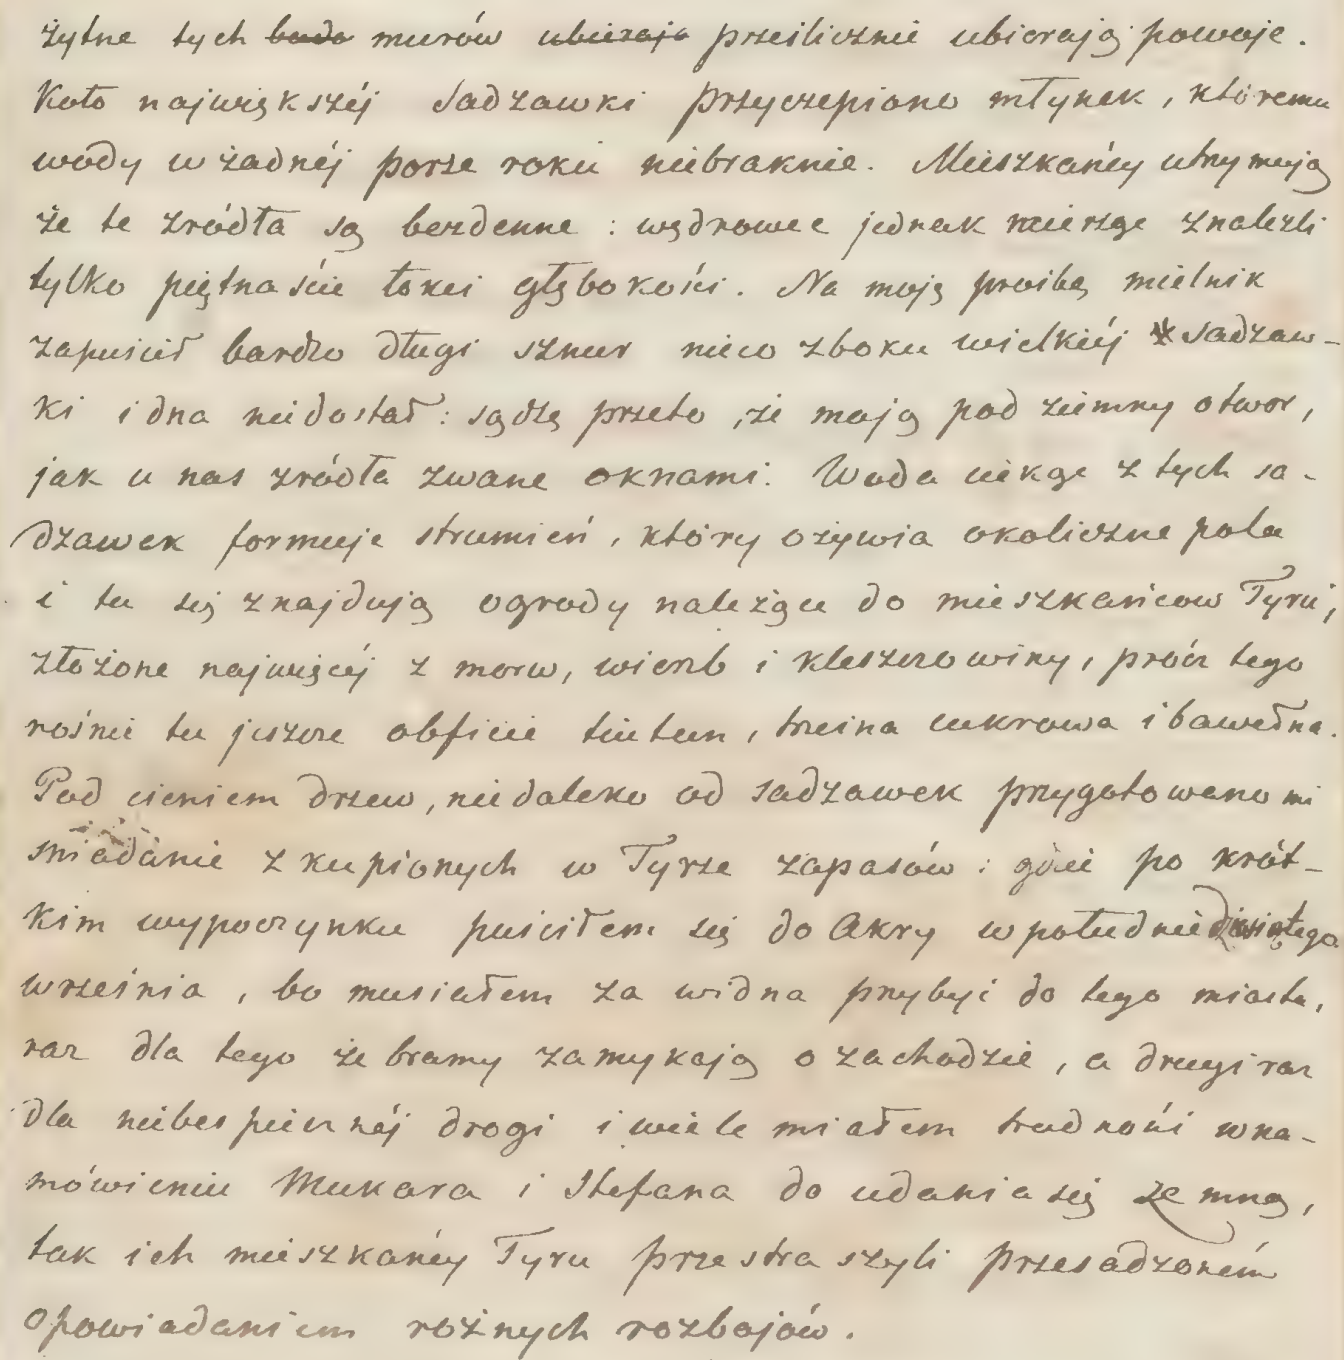 żytne tych budo murów ubierają prześlicznie ubierają powoje.
Koło największéj Sadzawki przyczepiono młynek, któremu
wody w żadnéj porze roku niebraknie. Mieszkańcy utrzymują
że te zródła są bezdenne : wędrowce jednak mierząc znalezli
tylko piętnaście łokci głębokości. Na moję prośbę mielnik
zapuścił bardzo długi sznur nieco zboku wielkiéj sadzaw-
ki i dna niedostał : sądzę przeto, że mają pod ziemny otwor,
jak u nas zródła zwane oknami. Woda ciekąc z tych sa-
dzawek formuje strumień, który ożywia okoliczne pola
i tu się znajdują ogrody należące do mieszkańcow Tyru,
złożone najwięcéj z morw, wierzb i kleszczowiny, prócz tego
rośnie tu jeszcze obficie tiutun, trzcina cukrowa i bawełna.
Pod cieniem drzew, niedaleko od sadzawek przygotowano mi
śniadanie z kupionych w Tyrze zapasów : gdzie po krót-
kim wypoczynku puściłem się do Akry w południe dziesiątego
września, bo musiałem za widna przybyć do tego miasta,
raz dla tego że bramy zamykają o zachodzie, a drugi raz
dla niebespiecznéj drogi i wiele miałem trudności w na-
mówieniu Mukara i Stefana do udania się ze mną,
tak ich mieszkańcy Tyru przestraszyli przesadzoném
opowiadaniem rożnych rozbojów.